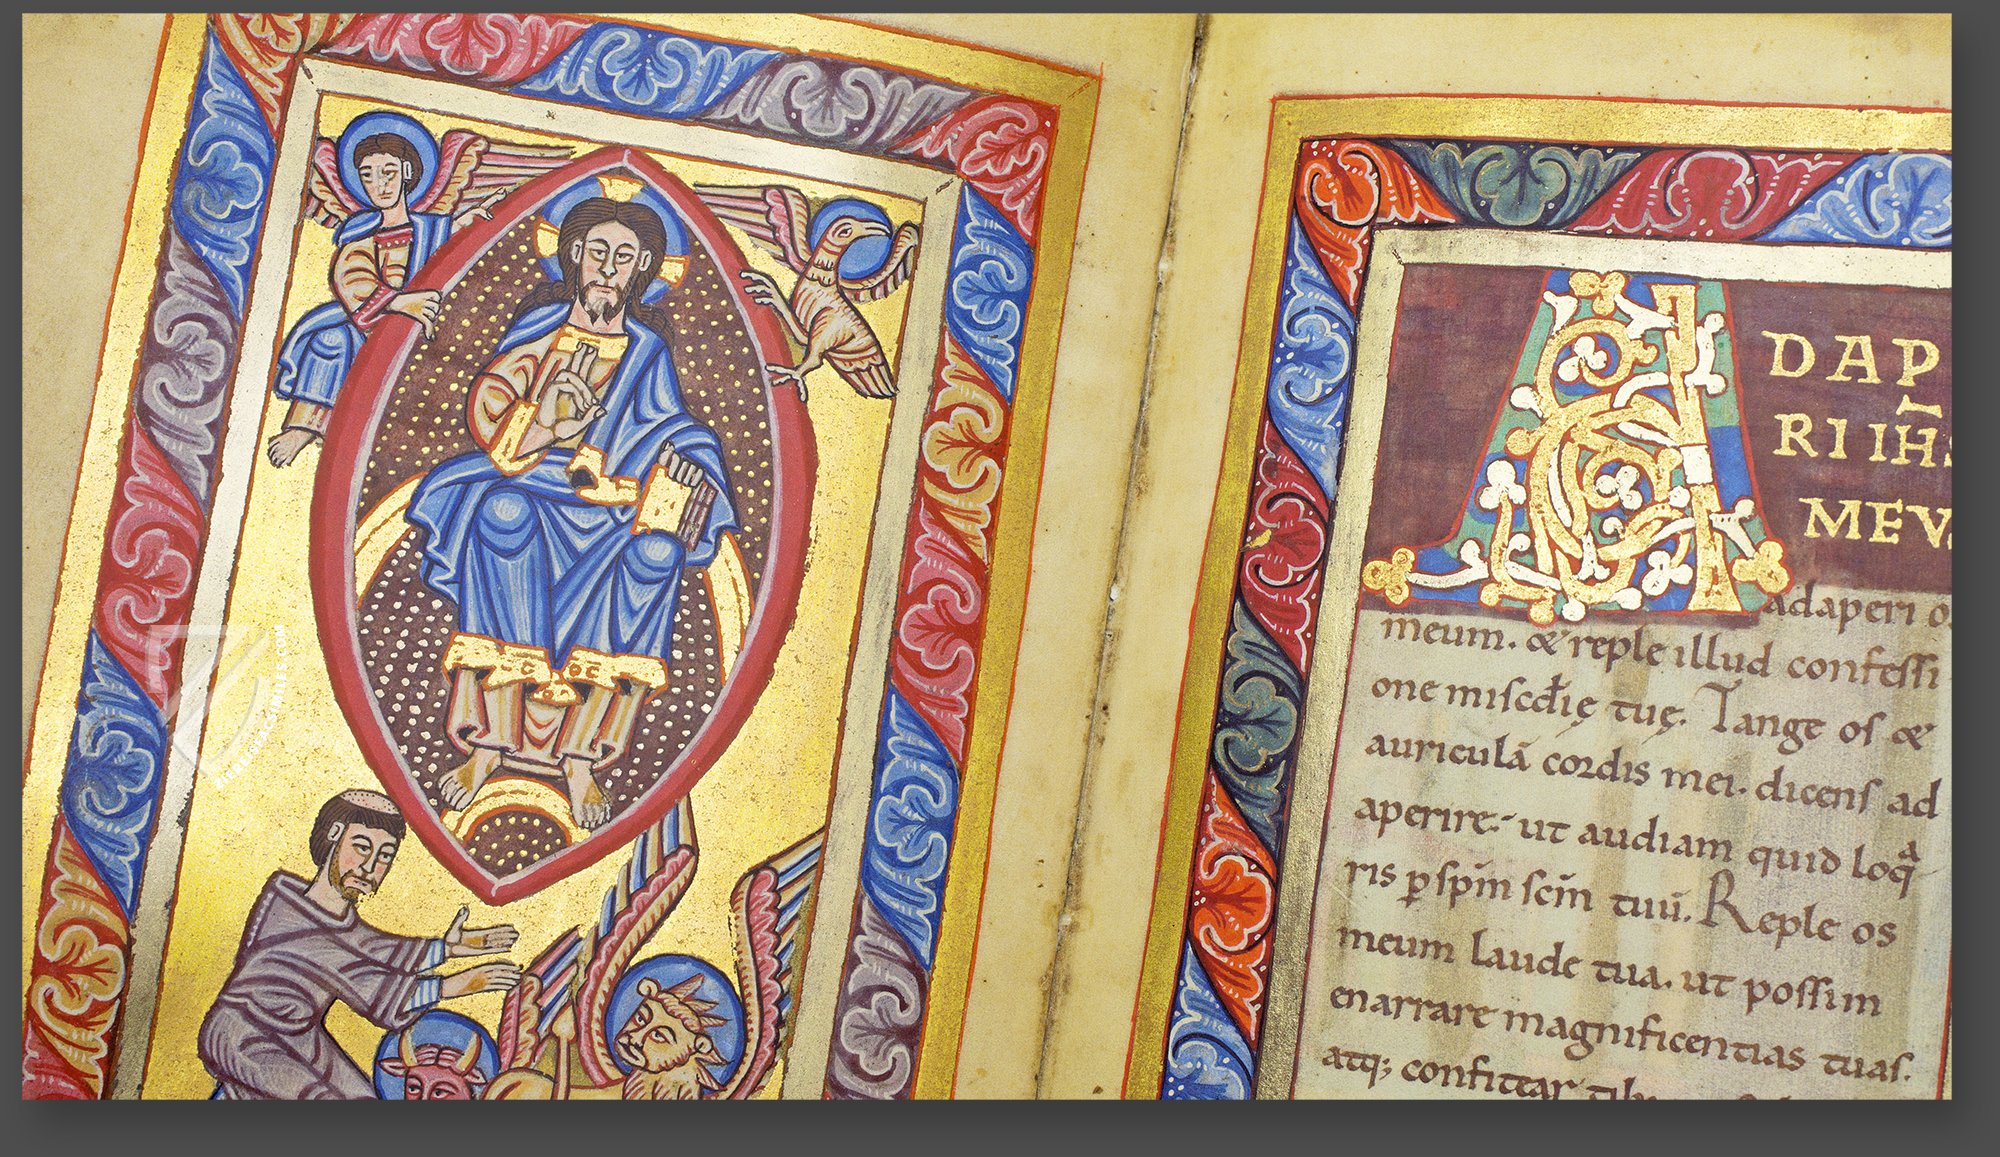 ADAP
RI IHS
MEV
adaperi os
meum. & reple illud confessi
one miscdię tuę. Tange os &
auriculā cordis mei. dicens ad
aperire. ut audiam quid loqͣ
ris ꝑ spm̄ scm̄ tuū. Reple os
meum laude tua. ut possim
enarrare magnificentias tuas.
atq; confitear